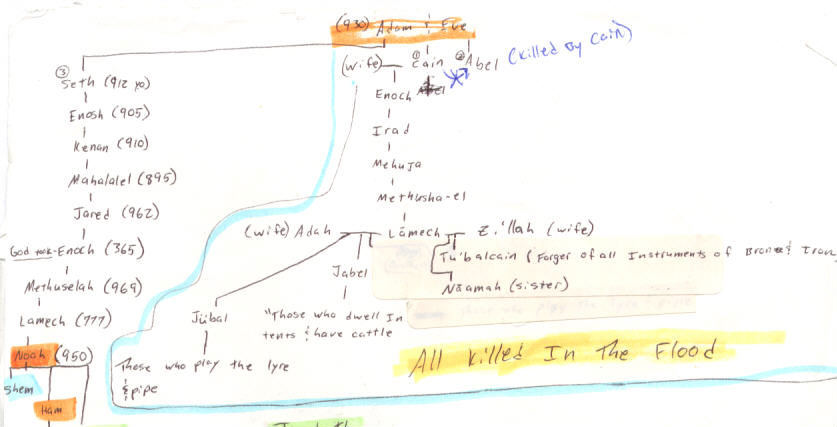 (930) Adam & Eve
(wife) ① Cain ② Abel (Killed By Cain)
③ Seth (912 yo)
Enosh (905)
Kenan (910)
Mahalalel (895)
Jared (962)
God took-Enoch (365)
Methuselah (969)
Lamech (777)
Noah (950)
Shem
Ham
Enoch
Irad
Mehuja
Methusha-el
(wife) Adah Lāmech Z.'llah (wife)
Tu'balcain (Forger of all Instruments of Bronze & Iron
Nāamah (sister)
Jabel
"Those who dwell In
tents & have cattle
Jūbal
Those who play the lyre
& pipe
All Killed In The Flood